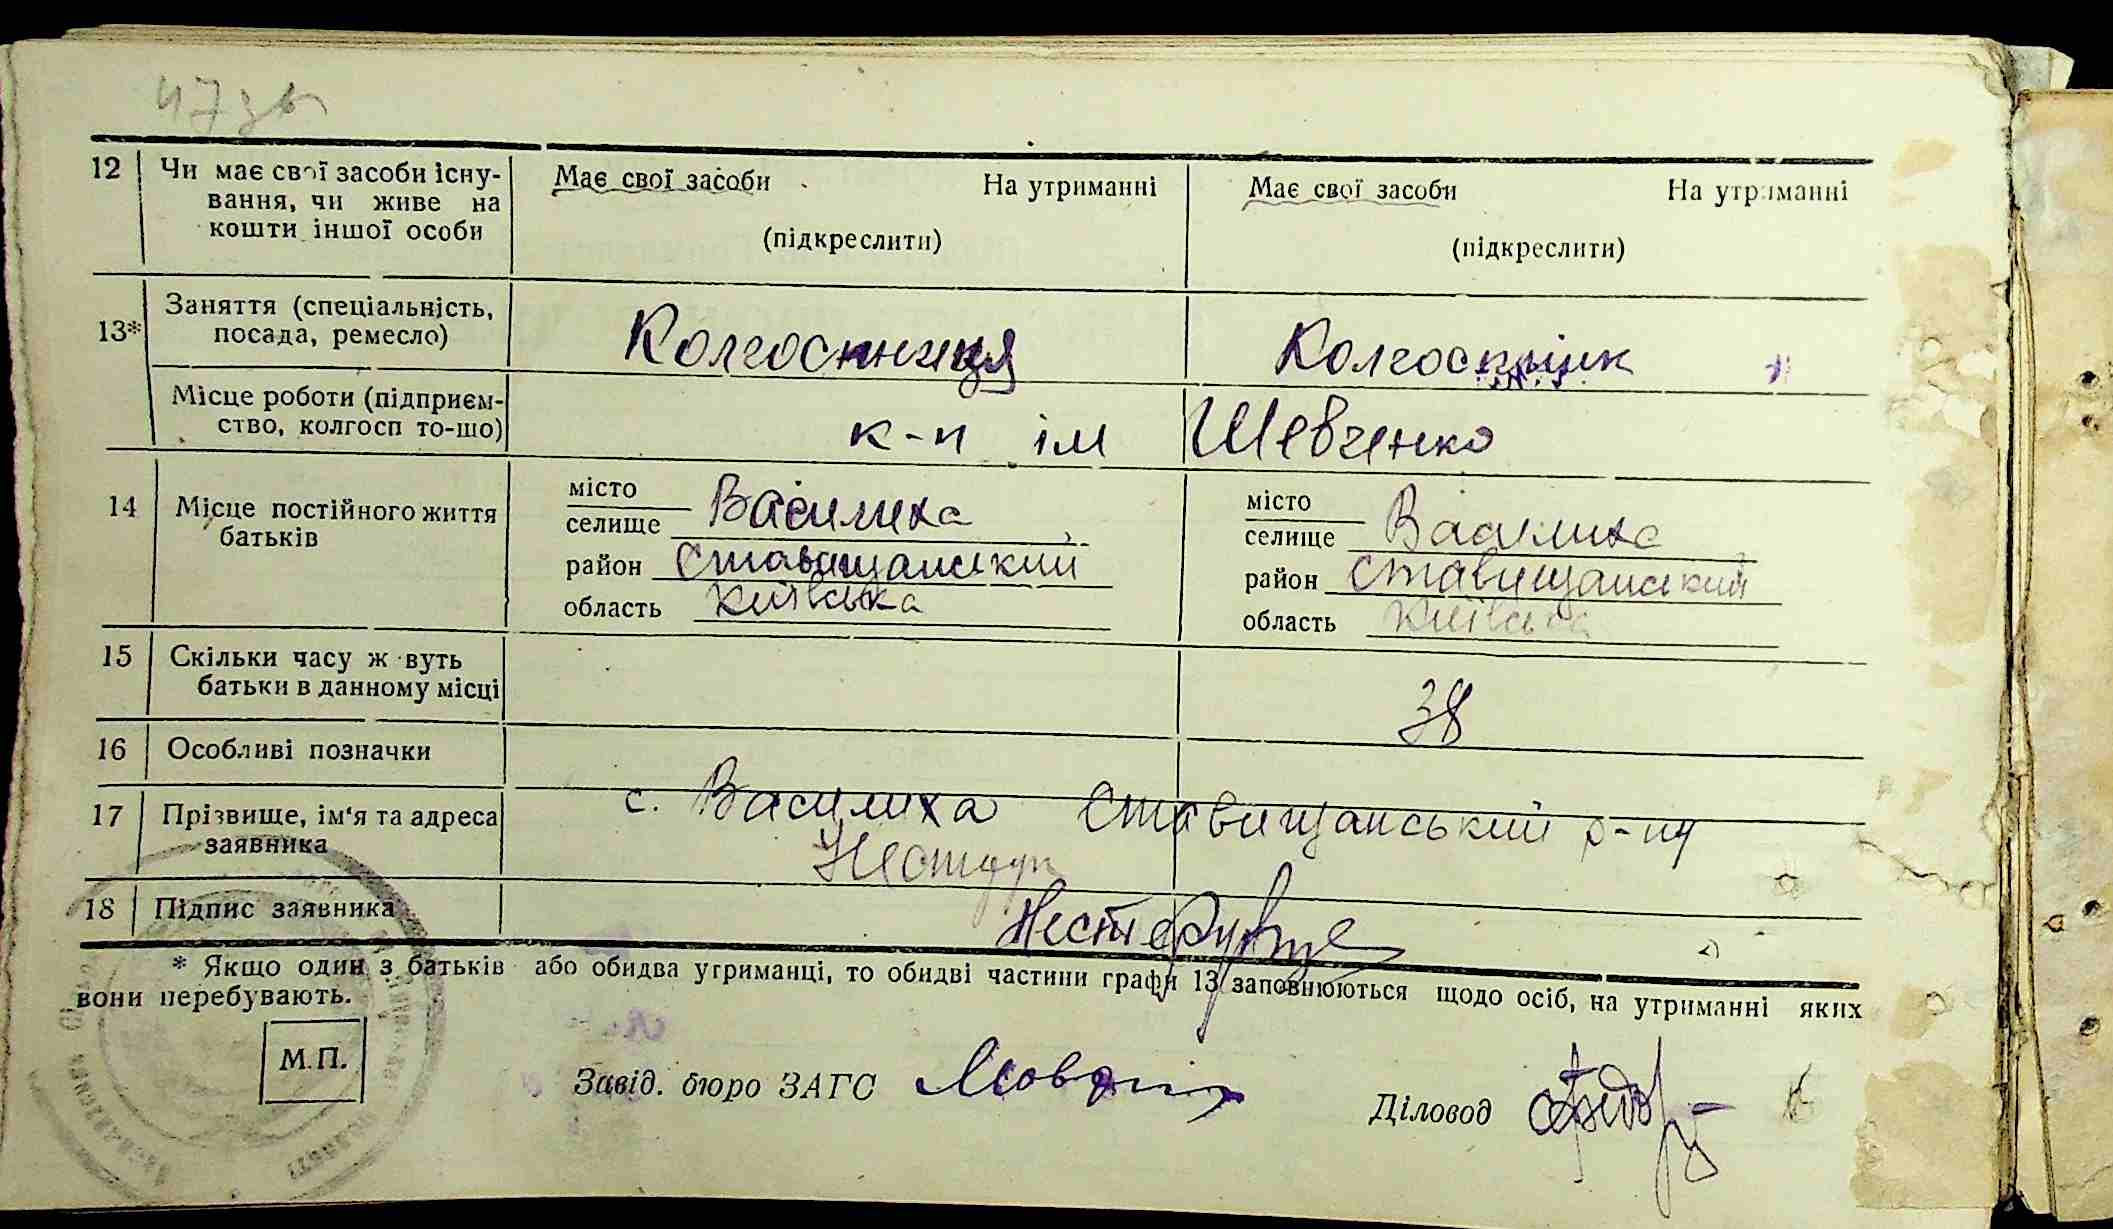 47 зв
12 Чи має свої засоби існу- Має свої засоби На утриманні Має свої засоби На утриманні
вання, чи живе на
кошти іншої особи (підкреслити) (підкреслити)
13* Заняття (спеціальність, Колгоспниця Колгоспник
посада, ремесло)
Місце роботи (підприєм- к-п ім Шевченко
ство, колгосп то-що)
14 Місце постійного життя місто Василиха місто Василиха
батьків селище селище
район Ставищанський район Ставищанський
область Київська область Київська
15 Скільки часу ж вуть 38
батьки в данному місці
16 Особливі позначки
17 Прізвище, ім'я та адреса с. Василиха Ставищанський р-ну
заявника
18 Підпис заявника
* Якщо один з батьків або обидва утриманці, то обидві частини графи 13 заповнюються щодо осіб, на утриманні яких
вони перебувають.
М.П.
Завід. бюро ЗАГС
Діловод